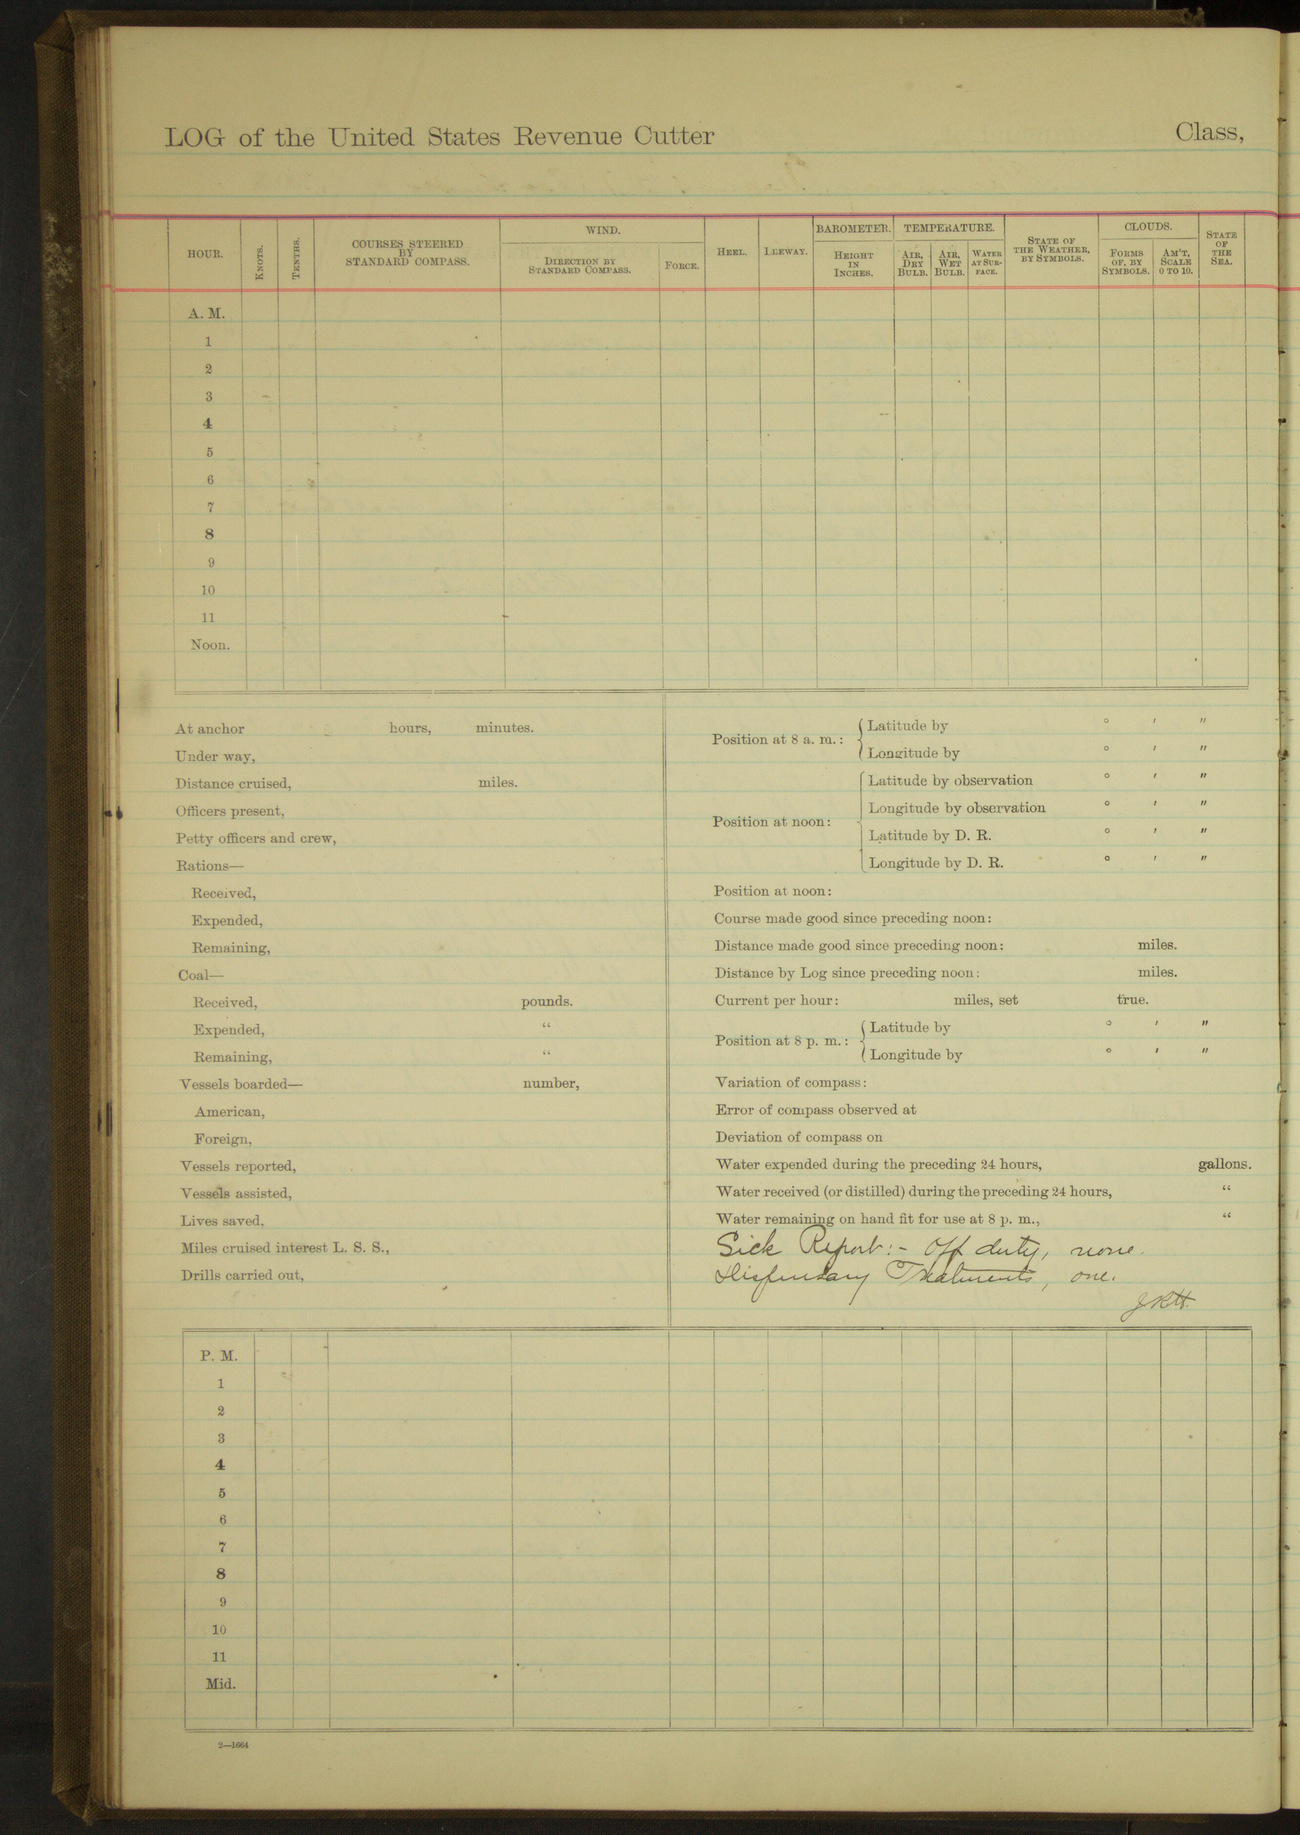 LOG of the United States Revenue Cutter Class,
HOUR. KNOTS. TENTHS. COURSES STEERED BY STANDARD COMPASS. WIND. DIRECTION BY STANDARD COMPASS. FORCE. HEEL. LEEWAY. BAROMETER. HEIGHT IN INCHES. TEMPERATURE. AIR, DRY BULB. AIR, WET BULB. WATER AT SURFACE. STATE OF THE WEATHER, BY SYMBOLS. CLOUDS. FORMS OF, BY SYMBOLS. AM'T, SCALE 0 TO 10. STATE OF THE SEA.
A. M.
1
2
3
4
5
6
7
8
9
10
11
Noon.
At anchor hours, minutes.
Under way,
Distance cruised, miles.
Officers present,
Petty officers and crew,
Rations—
Received,
Expended,
Remaining,
Coal—
Received, pounds.
Expended, “
Remaining, “
Vessels boarded— number,
American,
Foreign,
Vessels reported,
Vessels assisted,
Lives saved,
Miles cruised interest L. S. S.,
Drills carried out,
Position at 8 a. m.: Latitude by ° ′ ″
Longitude by ° ′ ″
Position at noon: Latitude by observation ° ′ ″
Longitude by observation ° ′ ″
Latitude by D. R. ° ′ ″
Longitude by D. R. ° ′ ″
Position at noon:
Course made good since preceding noon:
Distance made good since preceding noon: miles.
Distance by Log since preceding noon: miles.
Current per hour: miles, set true.
Position at 8 p. m.: Latitude by ° ′ ″
Longitude by ° ′ ″
Variation of compass:
Error of compass observed at
Deviation of compass on
Water expended during the preceding 24 hours, gallons.
Water received (or distilled) during the preceding 24 hours, “
Water remaining on hand fit for use at 8 p. m., “
Sick Report:- Off duty, none.
Dispensary Treatments, one.
P. M.
1
2
3
4
5
6
7
8
9
10
11
Mid.
2—1664